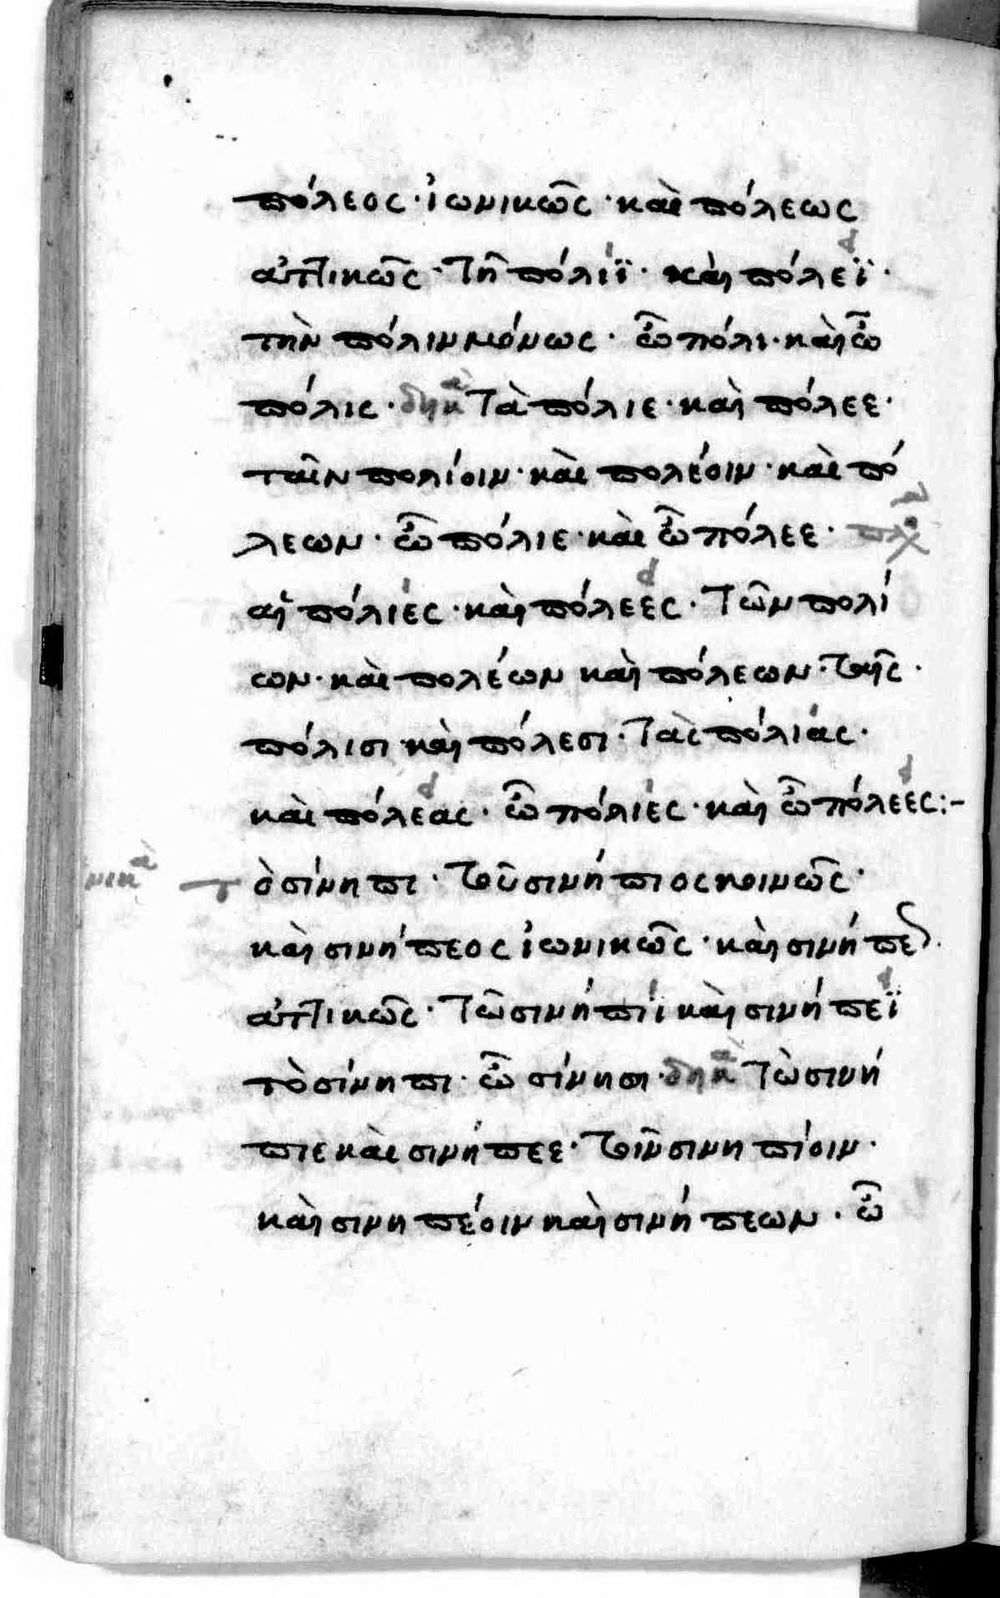 πόλεος · ἰωνικῶς · καὶ πόλεως
ἀττικῶς · τῆ πόλιϊ · καὶ πόλεϊ ·
τὴν πόλιν μόνως · ὦ πόλι · καὶ ὦ
πόλις · δηκὰ τὰ πόλιε · καὶ πόλεε ·
ταῖν πολίοιν · καὶ πολέοιν · καὶ πό
λεων · ὦ πόλιε · καὶ ὦ πόλεε ·
αἱ πόλιες · καὶ πόλεες · τῶν πολί
ων · καὶ πολέων καὶ πόλεων · τῆς ·
πόλισι καὶ πόλεσι · τὰς πόλιας ·
καὶ πόλεας · ὦ πόλιες · καὶ ὦ πόλεες :-
τὸ σίνηπι · τοῦ σινήπιος κοινῶς ·
καὶ σινήπεος ἰωνικῶς · καὶ σινήπεως ·
ἀττικῶς · τῶ σινήπιϊ καὶ σινήπεϊ
τὸ σίνηπι · ὦ σίνηπι · δηκὰ τὼ σινή
πιε καὶ σινήπεε · τοῖν σινηπίοιν ·
καὶ σινηπέοιν καὶ σινήπεων · ὦ